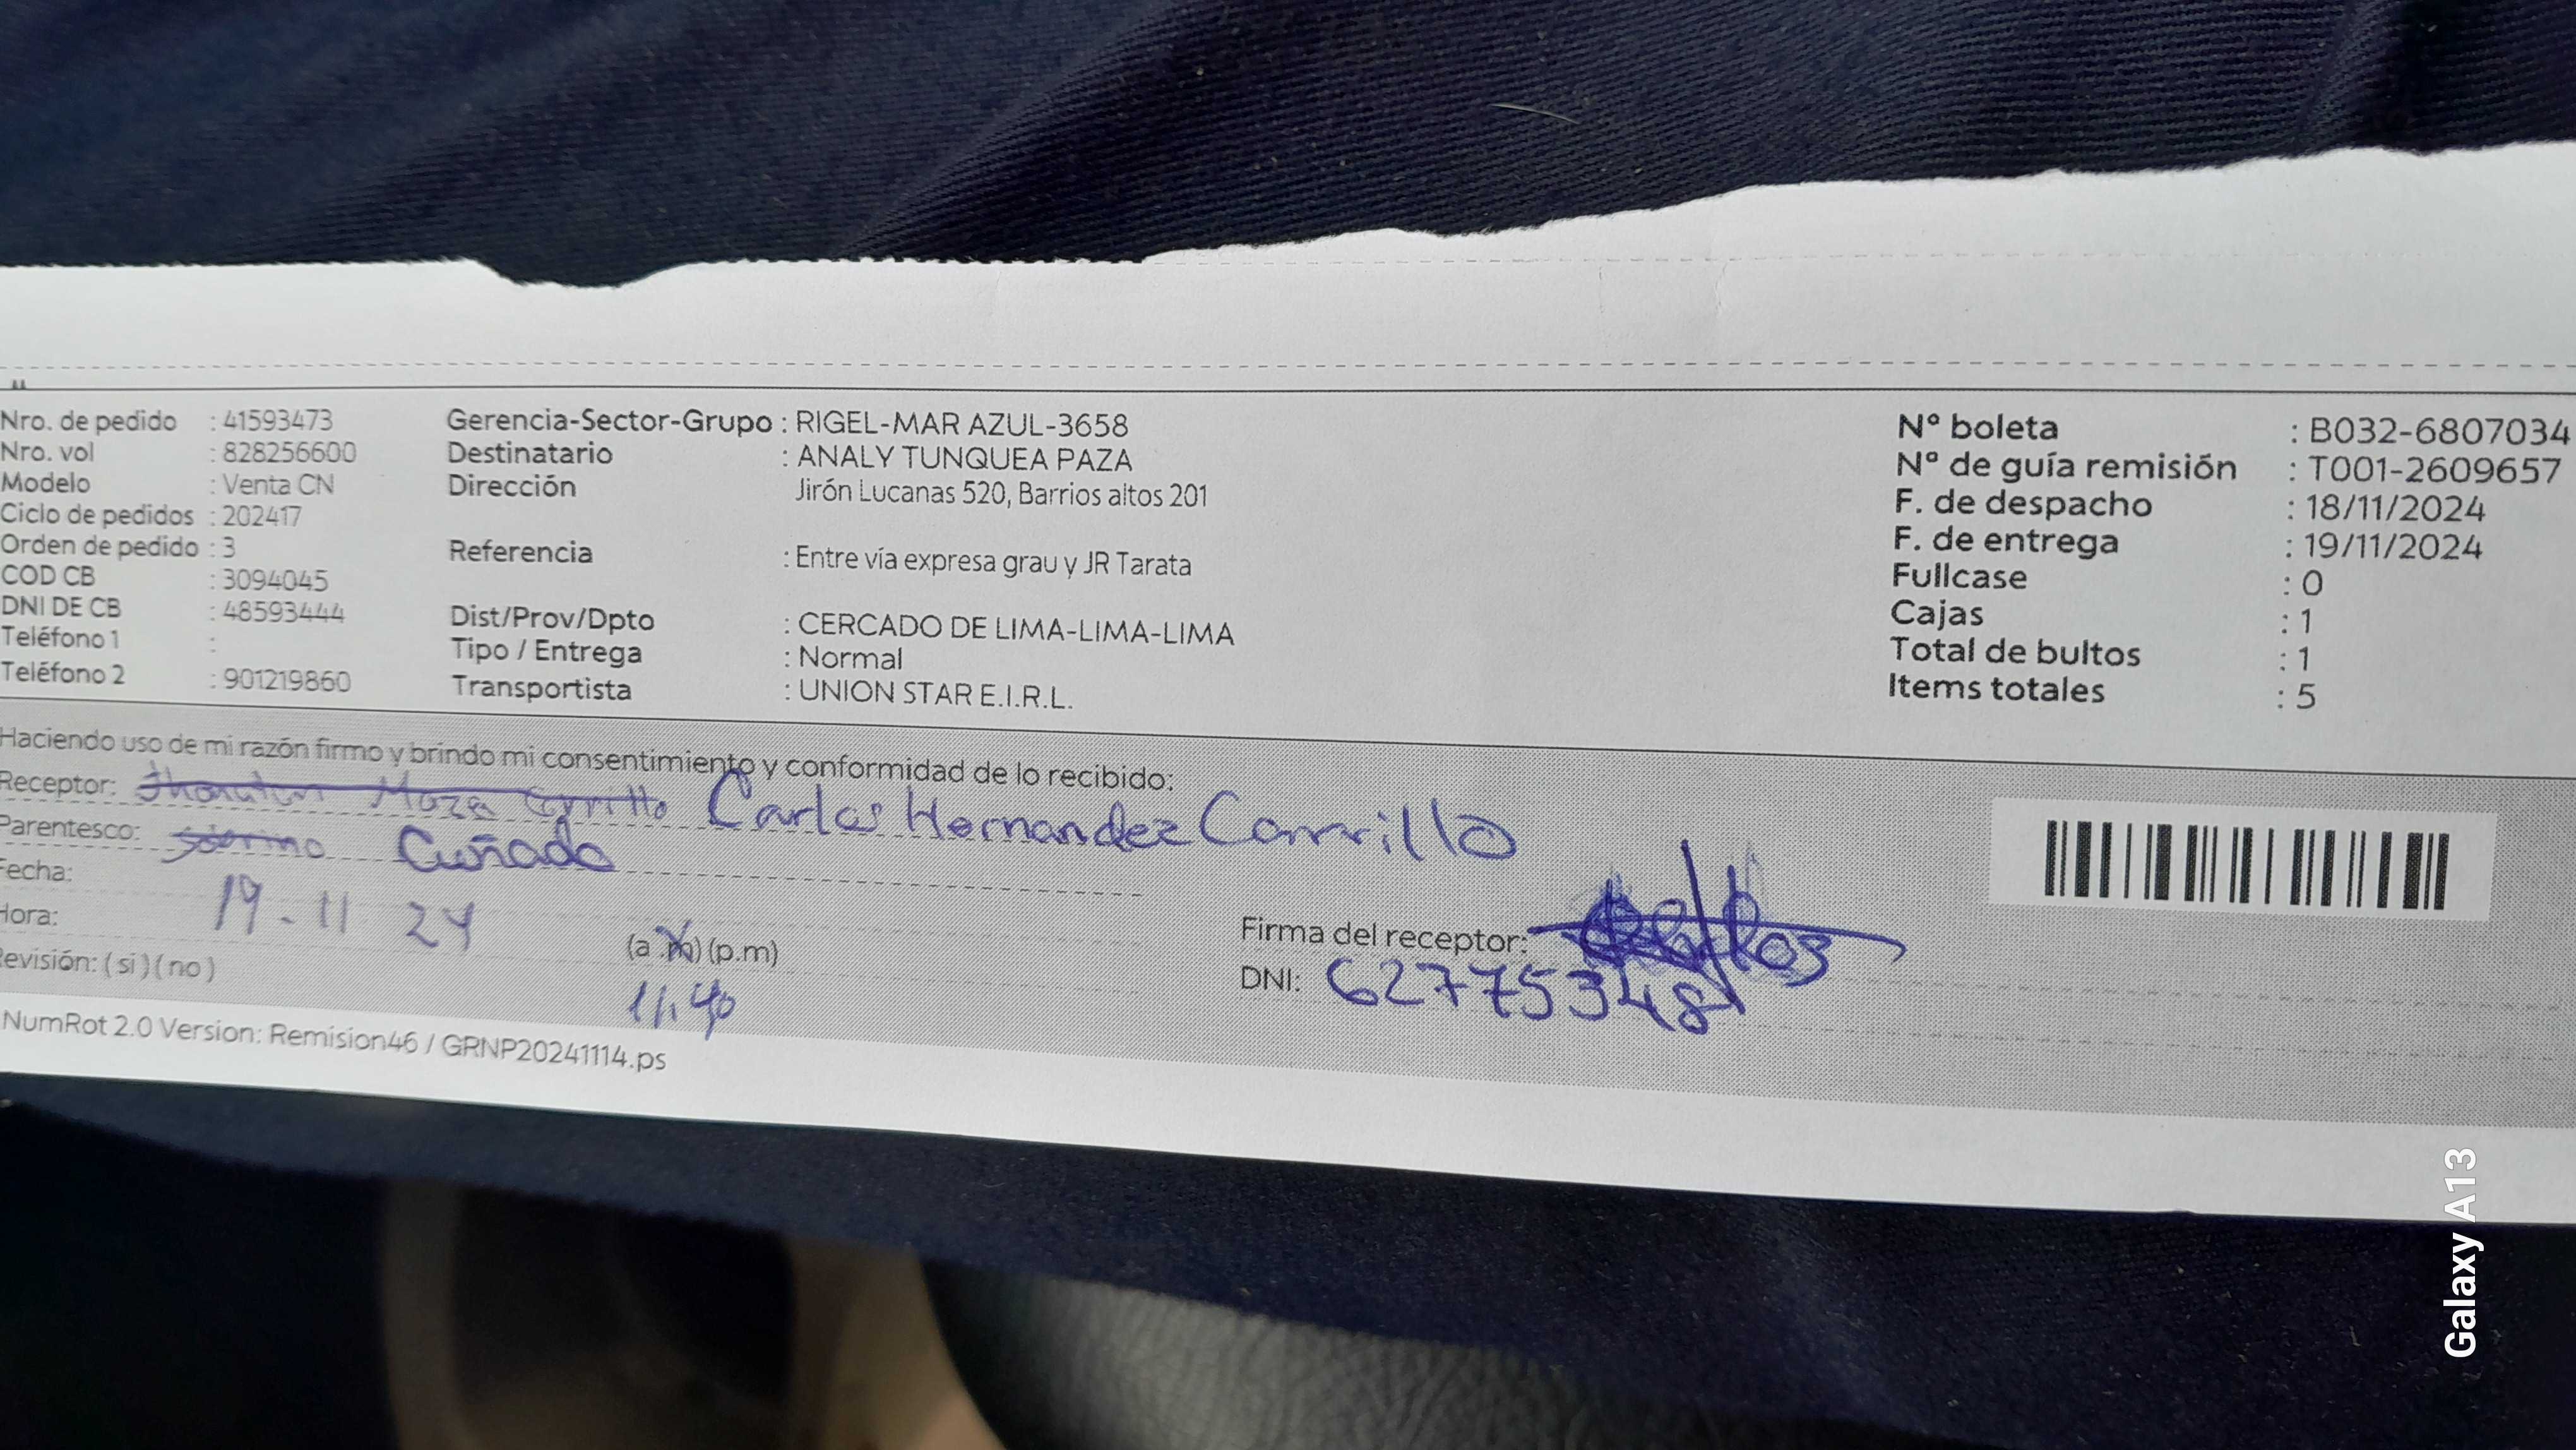 Nro. de pedido : 41593473
Nro. vol : 828256600
Modelo : Venta CN
Ciclo de pedidos : 202417
Orden de pedido : 3
COD CB : 3094045
DNI DE CB : 48593444
Teléfono 1 :
Teléfono 2 : 901219860
Gerencia-Sector-Grupo : RIGEL-MAR AZUL-3658
Destinatario : ANALY TUNQUEA PAZA
Dirección Jirón Lucanas 520, Barrios altos 201
Referencia : Entre vía expresa grau y JR Tarata
Dist/Prov/Dpto : CERCADO DE LIMA-LIMA-LIMA
Tipo / Entrega : Normal
Transportista : UNION STAR E.I.R.L.
Nº boleta : B032-6807034
Nº de guía remisión : T001-2609657
F. de despacho : 18/11/2024
F. de entrega : 19/11/2024
Fullcase : 0
Cajas : 1
Total de bultos : 1
Items totales : 5
Haciendo uso de mi razón firmo y brindo mi consentimiento y conformidad de lo recibido:
Receptor: Carlos Hernandez Carrillo
Parentesco: Cuñado
Fecha: 19-11 24
Hora: (a.m) (p.m)
11:40
Revisión: (si) (no)
Firma del receptor:
DNI: 62775348
NumRot 2.0 Version: Remision46 / GRNP20241114.ps
Galaxy A13